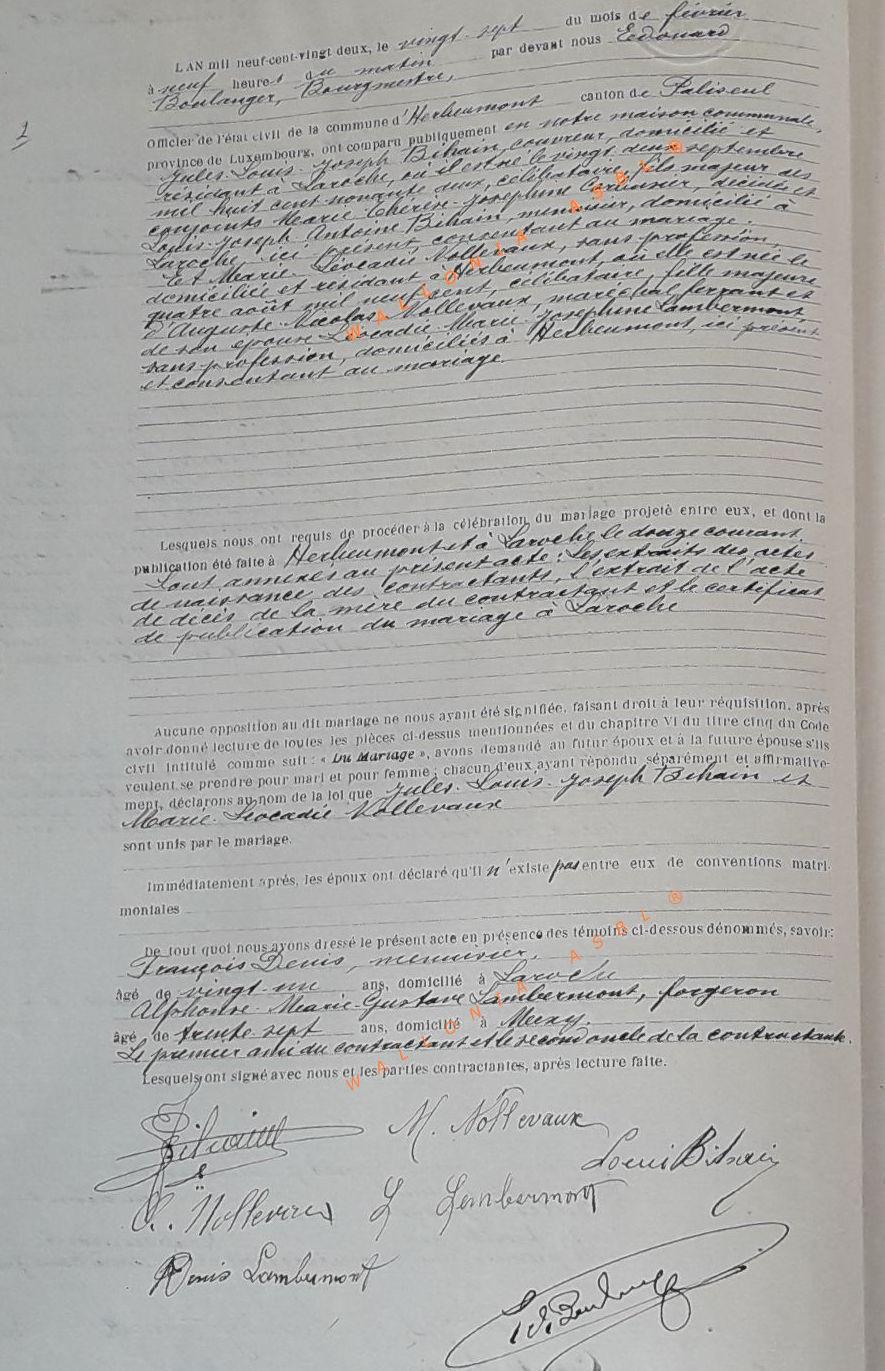 1
L'AN mil neuf-cent-vingt deux, le vingt-sept du mois de février
à neuf heures du matin par devant nous Edouard
Boulanger, Bourgmestre,
Officier de l'état civil de la commune d'Herbeumont canton de Paliseul
province de Luxembourg, ont comparu publiquement en notre maison communale,
Jules-Louis-Joseph Bihain, couvreur, domicilié et
résidant à Laroche, où il est né le vingt deux septembre
mil huit cent nonante deux, célibataire, fils majeur des
conjoints Marie-Thérèse-Josephine, décédée et
Louis-Joseph Antoine Bihain, menuisier, domicilié à
Laroche, ici présent, consentant au mariage.
Et Marie-Léocadie Nollevaux, sans profession,
domiciliée et résidant à Herbeumont, où elle est née le
quatre août mil neuf cent, célibataire, fille majeure
d'Auguste-Nicolas Nollevaux, maréchal ferrant et
de son épouse Léocadie-Marie-Josephine Lambermont
sans profession, domiciliés à Herbeumont, ici présent
et consentant au mariage.
Lesquels nous ont requis de procéder à la célébration du mariage projeté entre eux, et dont la
publication été faite à Herbeumont et à Laroche le douze courant.
Sont annexés au présent acte: Les extraits des actes
de naissance des contractants, l'extrait de l'acte
de décès de la mère du contractant et le certificat
de publication du mariage à Laroche
Aucune opposition au dit mariage ne nous ayant été signifiée, faisant droit à leur réquisition, après
avoir donné lecture de toutes les pièces ci-dessus mentionnées et du chapitre VI du titre cinq du Code
civil intitulé comme suit : « Du Mariage », avons demandé au futur époux et à la future épouse s'ils
veulent se prendre pour mari et pour femme ; chacun d'eux ayant répondu séparément et affirmative-
ment, déclarons au nom de la loi que Jules-Louis-Joseph Bihain et
Marie-Léocadie Nollevaux
sont unis par le mariage.
Immédiatement après, les époux ont déclaré qu'il n'existe pas entre eux de conventions matri-
moniales
De tout quoi nous avons dressé le présent acte en présence des témoins ci-dessous dénommés, savoir:
François Denis, menuisier,
âgé de vingt-un ans, domicilié à Laroche
Alphonse-Marie-Gustave Lambermont, forgeron
âgé de trente-sept ans, domicilié à
Le premier ami du contractant et le second oncle de la contractante.
Lesquels ont signé avec nous et les parties contractantes, après lecture faite.
Bihain
M. Nollevaux
Louis Bihain
A. Nollevaux
L Lambermont
Denis Lambermont
Ed. Boulanger
WALLONIA ASBL ®
WALLONIA ASBL ®